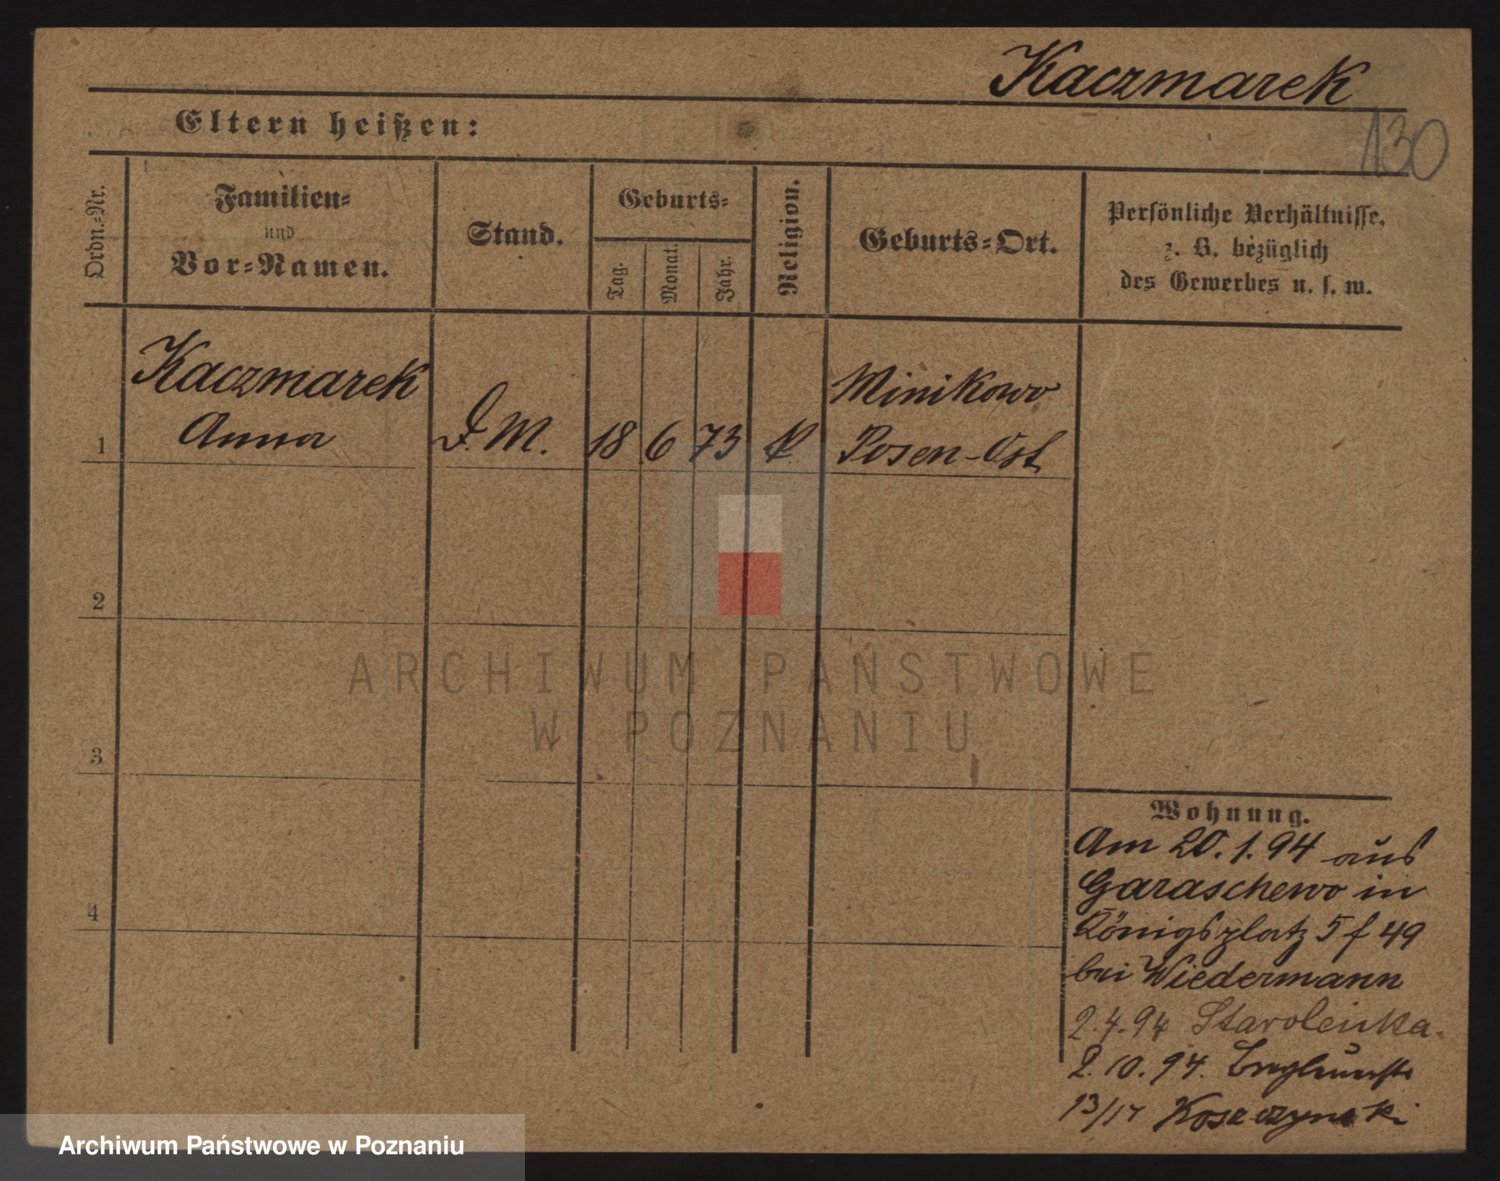 Kaczmarek
130
Eltern heißen:
Ordn.=Nr.
Familien=
und
Vor=Namen.
Stand.
Geburts=
Tag.
Monat.
Jahr.
Religion.
Geburts=Ort.
Persönliche Verhältnisse,
z. B. bezüglich
des Gewerbes u. s. w.
Kaczmarek
Anna
1
D. M.
18
6
73
K.
Minikowo
Posen-Ost
2
3
4
ARCHIWUM PAŃSTWOWE
W POZNANIU
Wohnung.
Am 20.1.94 aus
Garaschewo in
Königsplatz 5 f 49
bei Wiedermann
2.4.94 Starolenka.
2.10.94.
13/17 Koszczynski
Archiwum Państwowe w Poznaniu